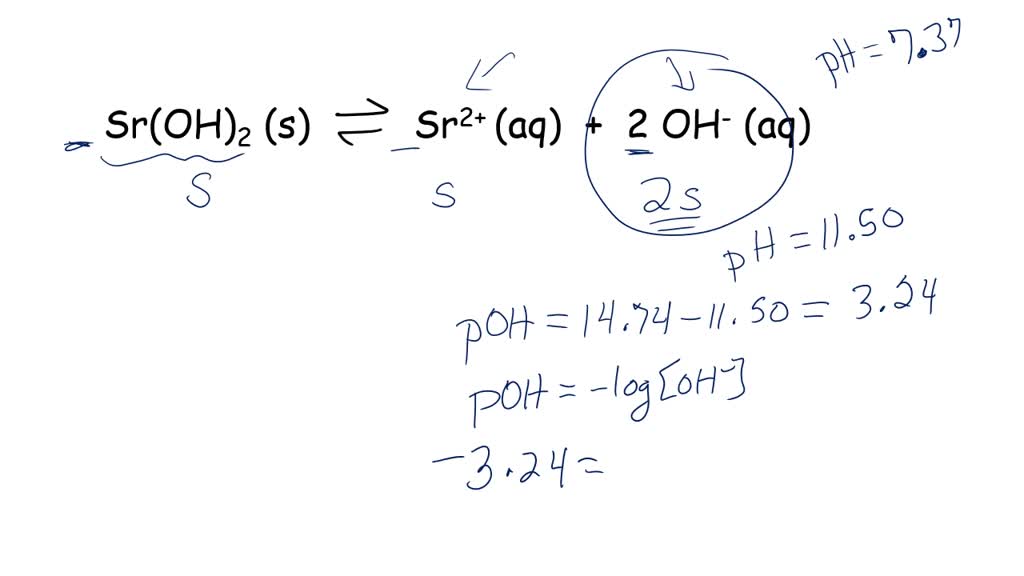 pH = 7.37
Sr(OH)₂ (s) ⇌ Sr²⁺ (aq) + 2 OH⁻ (aq)
S s 2s
pH = 11.50
pOH = 14.74 - 11.50 = 3.24
pOH = -log[OH⁻]
-3.24 =